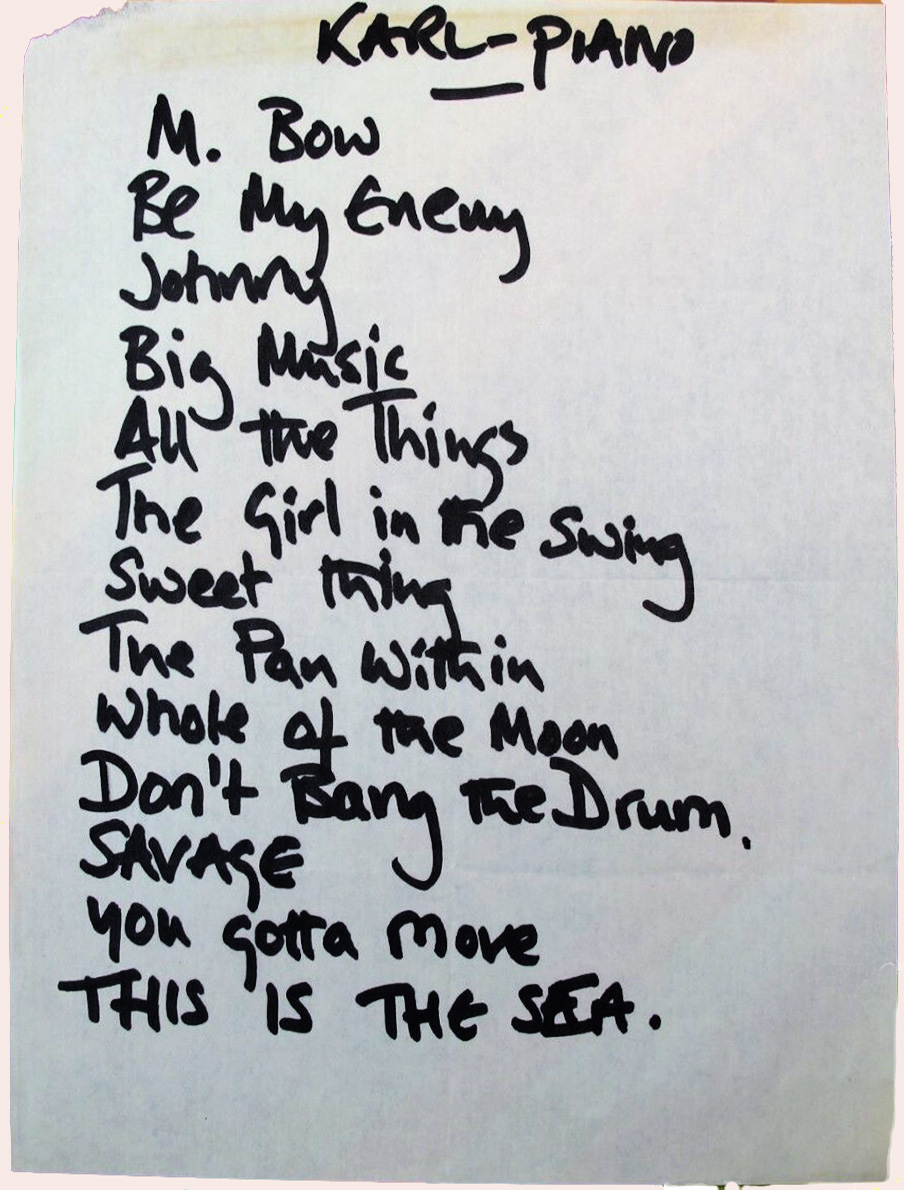 KARL-PIANO
M. Bow
Be My Enemy
Johnny
Big Music
All the Things
The Girl in the Swing
Sweet thing
The Pan Within
Whole of the Moon
Don't Bang The Drum.
SAVAGE
you gotta move
THIS IS THE SEA.